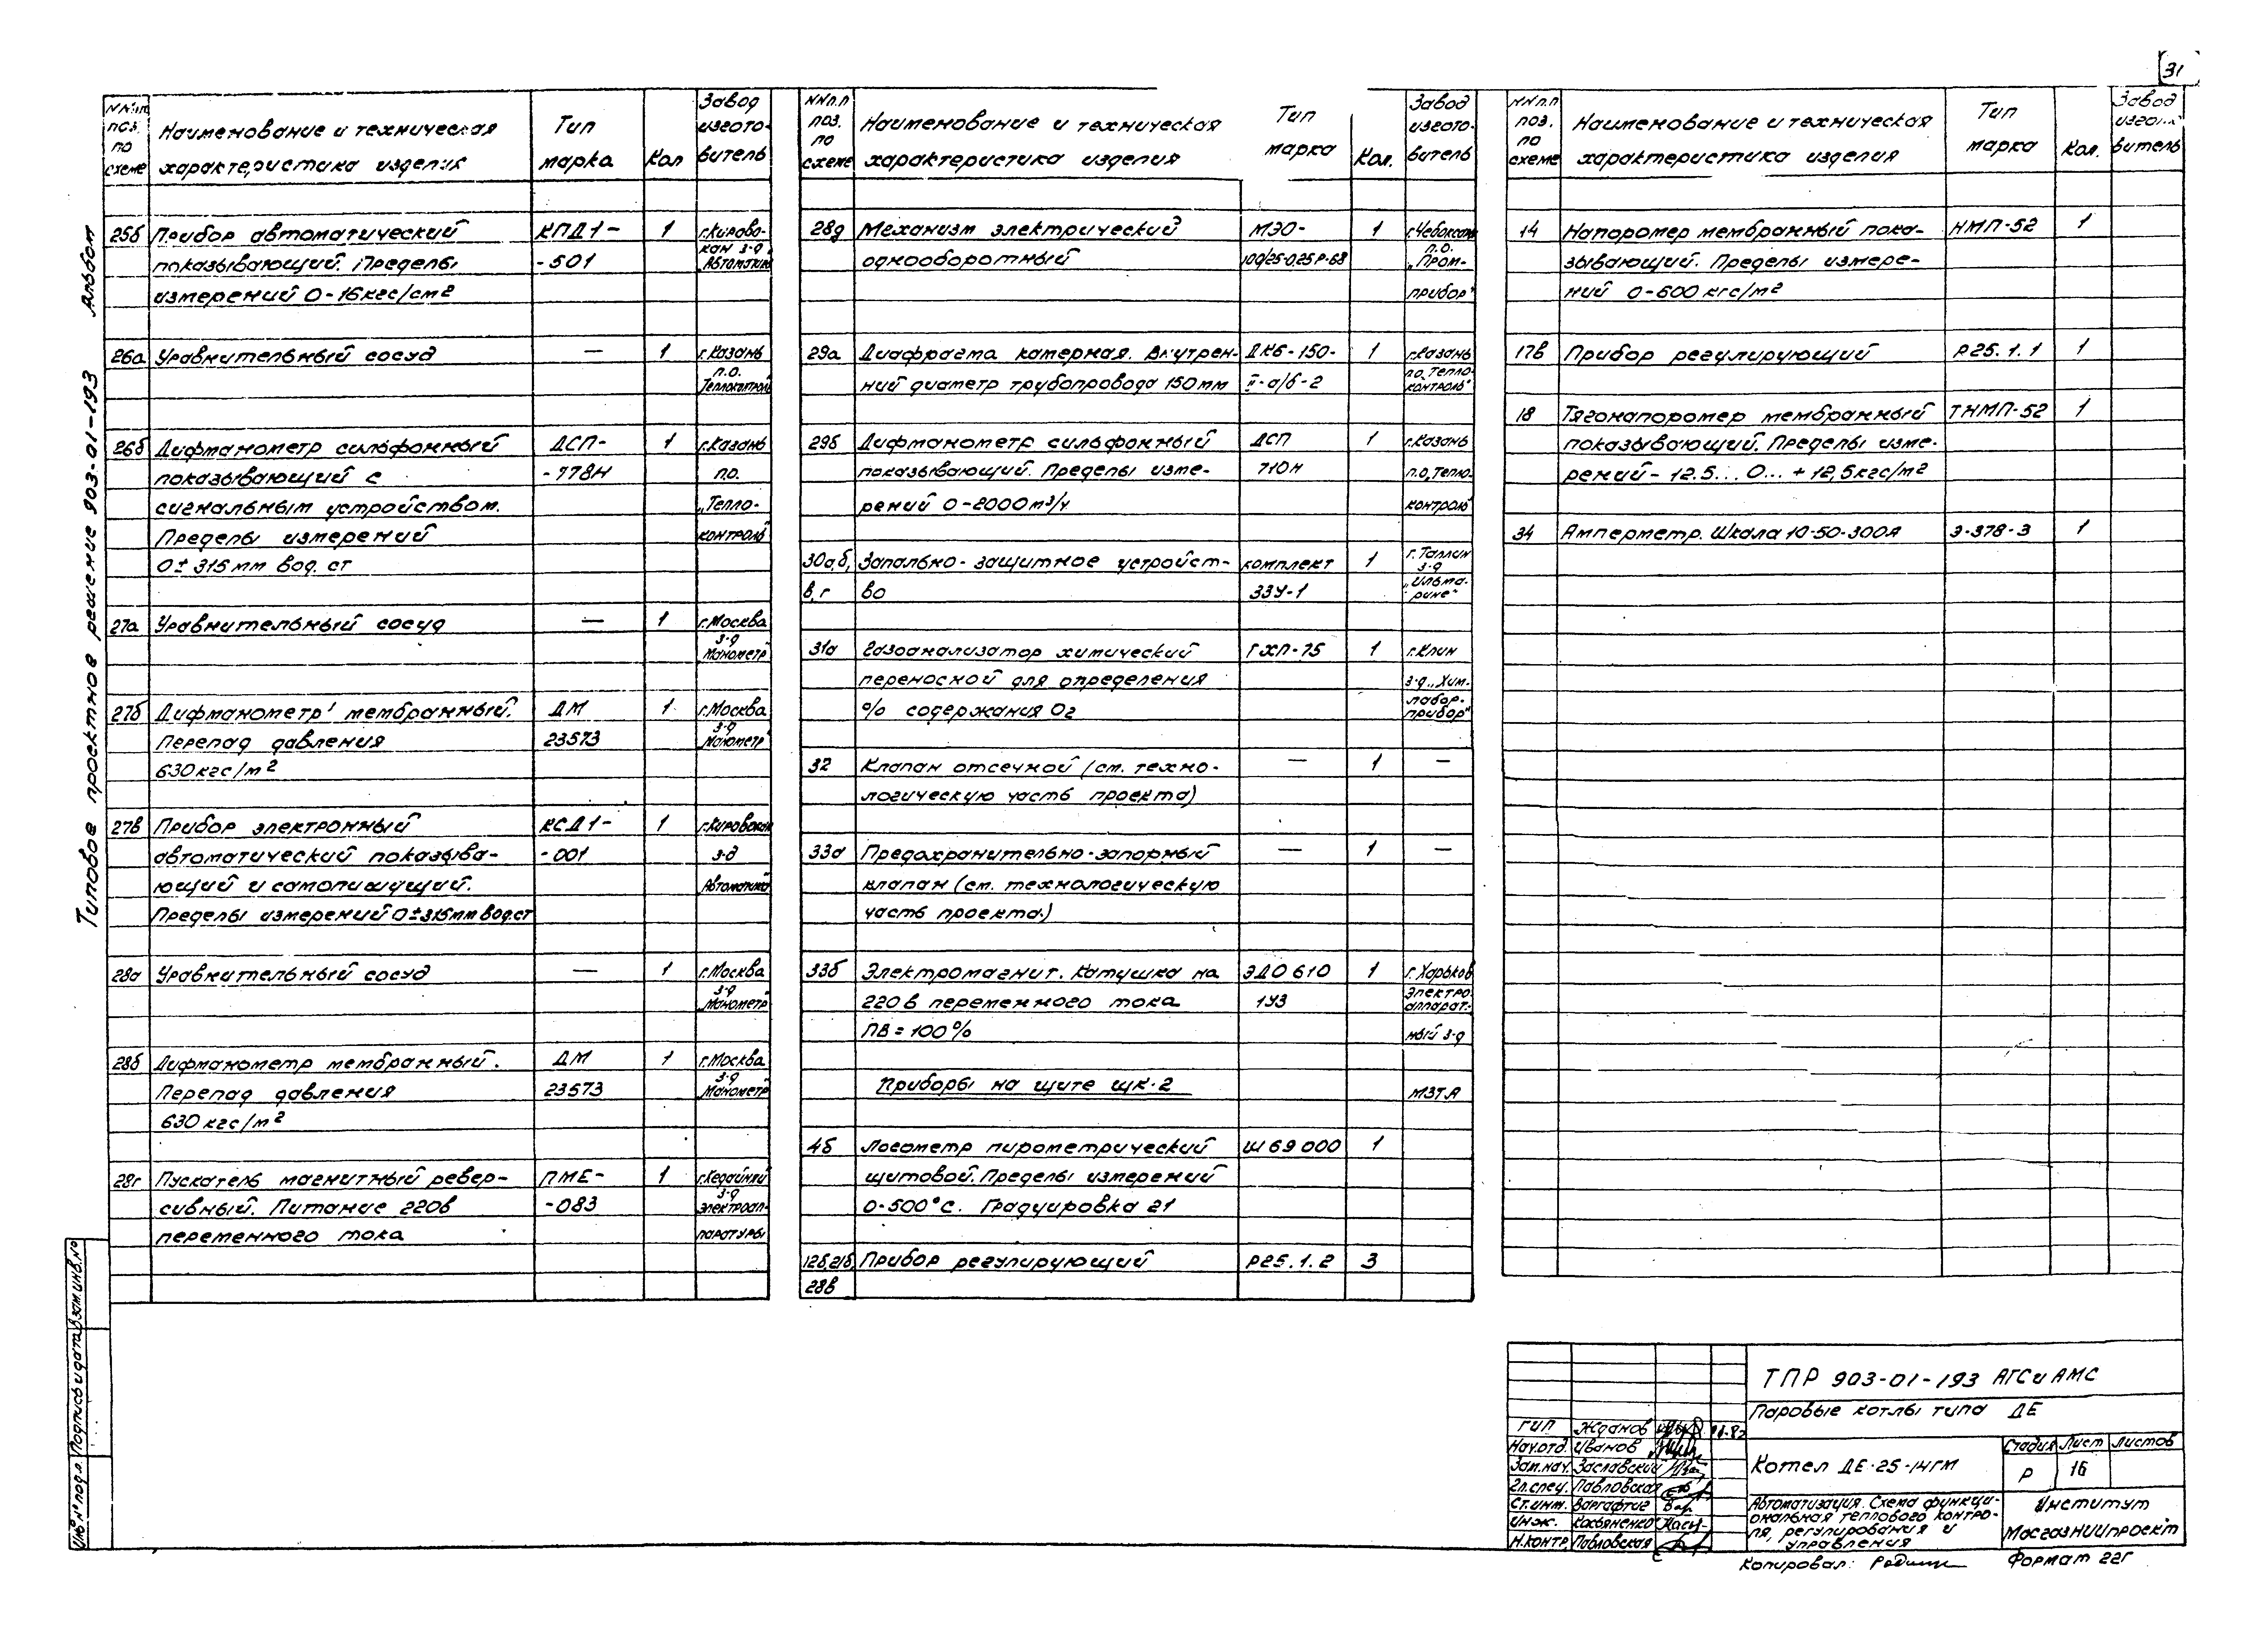 31
Типовое проектное решение 903-01-193 Альбом
NN п.п поз. по схеме
Наименование и техническая характеристика изделия
Тип марка
Кол
Завод изгото-витель
25б Прибор автоматический КПД1- 1 г.Кирово-
показывающий. Пределы -501 кан з-д „Автоматика
измерений 0-16кгс/см2
26а Уравнительный сосуд — 1 г.Казань
п.о. Теплоконтроль
26б Дифманометр сильфонный ДСП- 1 г.Казань
показывающий с -778Н п.о.
сигнальным устройством. „Тепло-
Пределы измерений контроль"
0±315мм вод. ст
27а Уравнительный сосуд — 1 г.Москва
з-д Манометр
27б Дифманометр мембранный. ДМ 1 г.Москва
Перепад давления 23573 з-д „Манометр"
630кгс/м2
27в Прибор электронный КСД1- 1 г.Кировокан
автоматический показыва- -001 з-д
ющий и самопишущий. „Автоматика"
Пределы измерений 0±315мм вод.ст
28а Уравнительный сосуд — 1 г.Москва
з-д „Манометр"
28б Дифманометр мембранный. ДМ 1 г.Москва
Перепад давления 23573 з-д „Манометр"
630кгс/м2
28г Пускатель магнитный ревер- ПМЕ- 1 г.Кедайняй
сивный. Питание 220в -083 з-д электроап-
переменного тока паратуры
NN п.п поз. по схеме
Наименование и техническая характеристика изделия
Тип марка
Кол.
Завод изгото-витель
28д Механизм электрический МЭО- 1 г.Чебоксары
однооборотный 100/25-0,25Р-68 п.о. „Пром-
прибор"
29а Диафрагма камерная. Внутрен- ДКБ-150- 1 г.Казань
ний диаметр трубопровода 150мм II-а/б-2 п.о. „Тепло-контроль"
29б Дифманометр сильфонный ДСП 1 г.Казань
показывающий. Пределы изме- 710Н п.о. „Тепло-
рений 0-2000м3/ч контроль"
30а,б, Запально-защитное устройст- комплект 1 г.Таллин з-д
в,г во ЗЗУ-1 „Ильма-рине"
31а Газоанализатор химический ГХП-75 1 г.Клин
переносной для определения з-д „Хим-
% содержания О2 лабор-прибор"
32 Клапан отсечной (см. техно- — 1 —
логическую часть проекта)
33а Предохранительно-запорный — 1 —
клапан (см. технологическую
часть проекта.)
33б Электромагнит. Катушка на ЭДО 610 1 г. Харьков
220в переменного тока 1У3 электро-аппарат-
ПВ=100% ный з-д
Приборы на щите ЩК-2 МЗТА
4б Логометр пирометрический Ш69000 1
щитовой. Пределы измерений
0-500°С. Градуировка 21
12б,21б, Прибор регулирующий Р25.1.2 3
28в
NN п.п поз. по схеме
Наименование и техническая характеристика изделия
Тип марка
Кол.
Завод изгот. витель
14 Напоромер мембранный пока- НМП-52 1
зывающий. Пределы измере-
ний 0-600 кгс/м2
17в Прибор регулирующий Р25.1.1 1
18 Тягонапоромер мембранный ТНМП-52 1
показывающий. Пределы изме-
рений -12.5...0...+12,5кгс/м2
34 Амперметр. Шкала 10-50-300А Э-378-3 1
ТПР 903-01-193 АГСиАМС
Паровые котлы типа ДЕ
Котел ДЕ-25-14ГМ
Стадия Лист Листов
Р 16
Автоматизация. Схема функци-
ональная теплового контро-
ля, регулирования и
управления
Институт
МосгазНИИпроект
ГИП Жданов
Нач.отд. Иванов
Зам.нач. Заславский
Гл.спец. Павловская
Ст.инж. Варгафтиг
Инж. Касьяненко
Н.контр. Павловская
Копировал:
Формат 22Г
Инв.№ подл. Подпись и дата Взам.инв.№